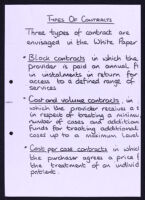 TYPES OF CONTRACTS
Three types of contract are
envisaged in the White Paper
• Block contracts in which the
provider is paid an annual f
in instalments in return for
access to a defined range of
services
• Cost and volume contracts, in
which the provider receives a s
in respect of treating a minimu
number of cases and addition
funds for treating additional
cases up to a maximum level
• Cost per case contracts in which
the purchaser agrees a price f
the treatment of an individ
patient.